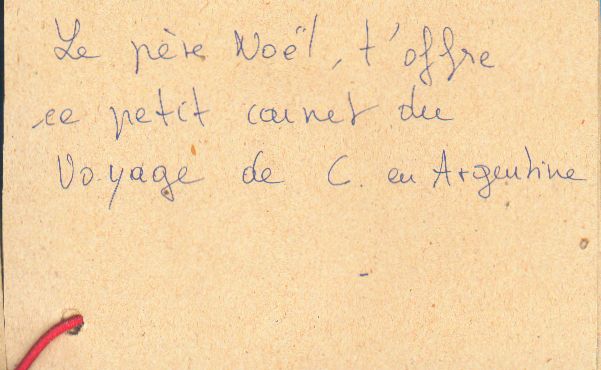 Le père Noël, t'offre
ce petit carnet du
Voyage de C. en Argentine